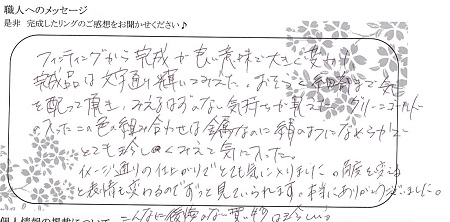 職人へのメッセージ
是非 完成したリングのご感想をお聞かせください♪
フィッティングから完成が良い意味で大きく変わり
完成品は文字通り輝いてみえた。おそらく細部まで気
を配って頂き、みえるはずのない気持ちが見えた。グリーンゴールドに
入ったこの色の組み合わせは金属なのに絹のようになめらかで
とても珍しくみえて気に入った。
イメージ通りの仕上がりでとても気に入りました。角度を変える
と表情も変わるのでずっと見ていられます。本当にありがとうございました。
個人情報の掲載について
こんなに